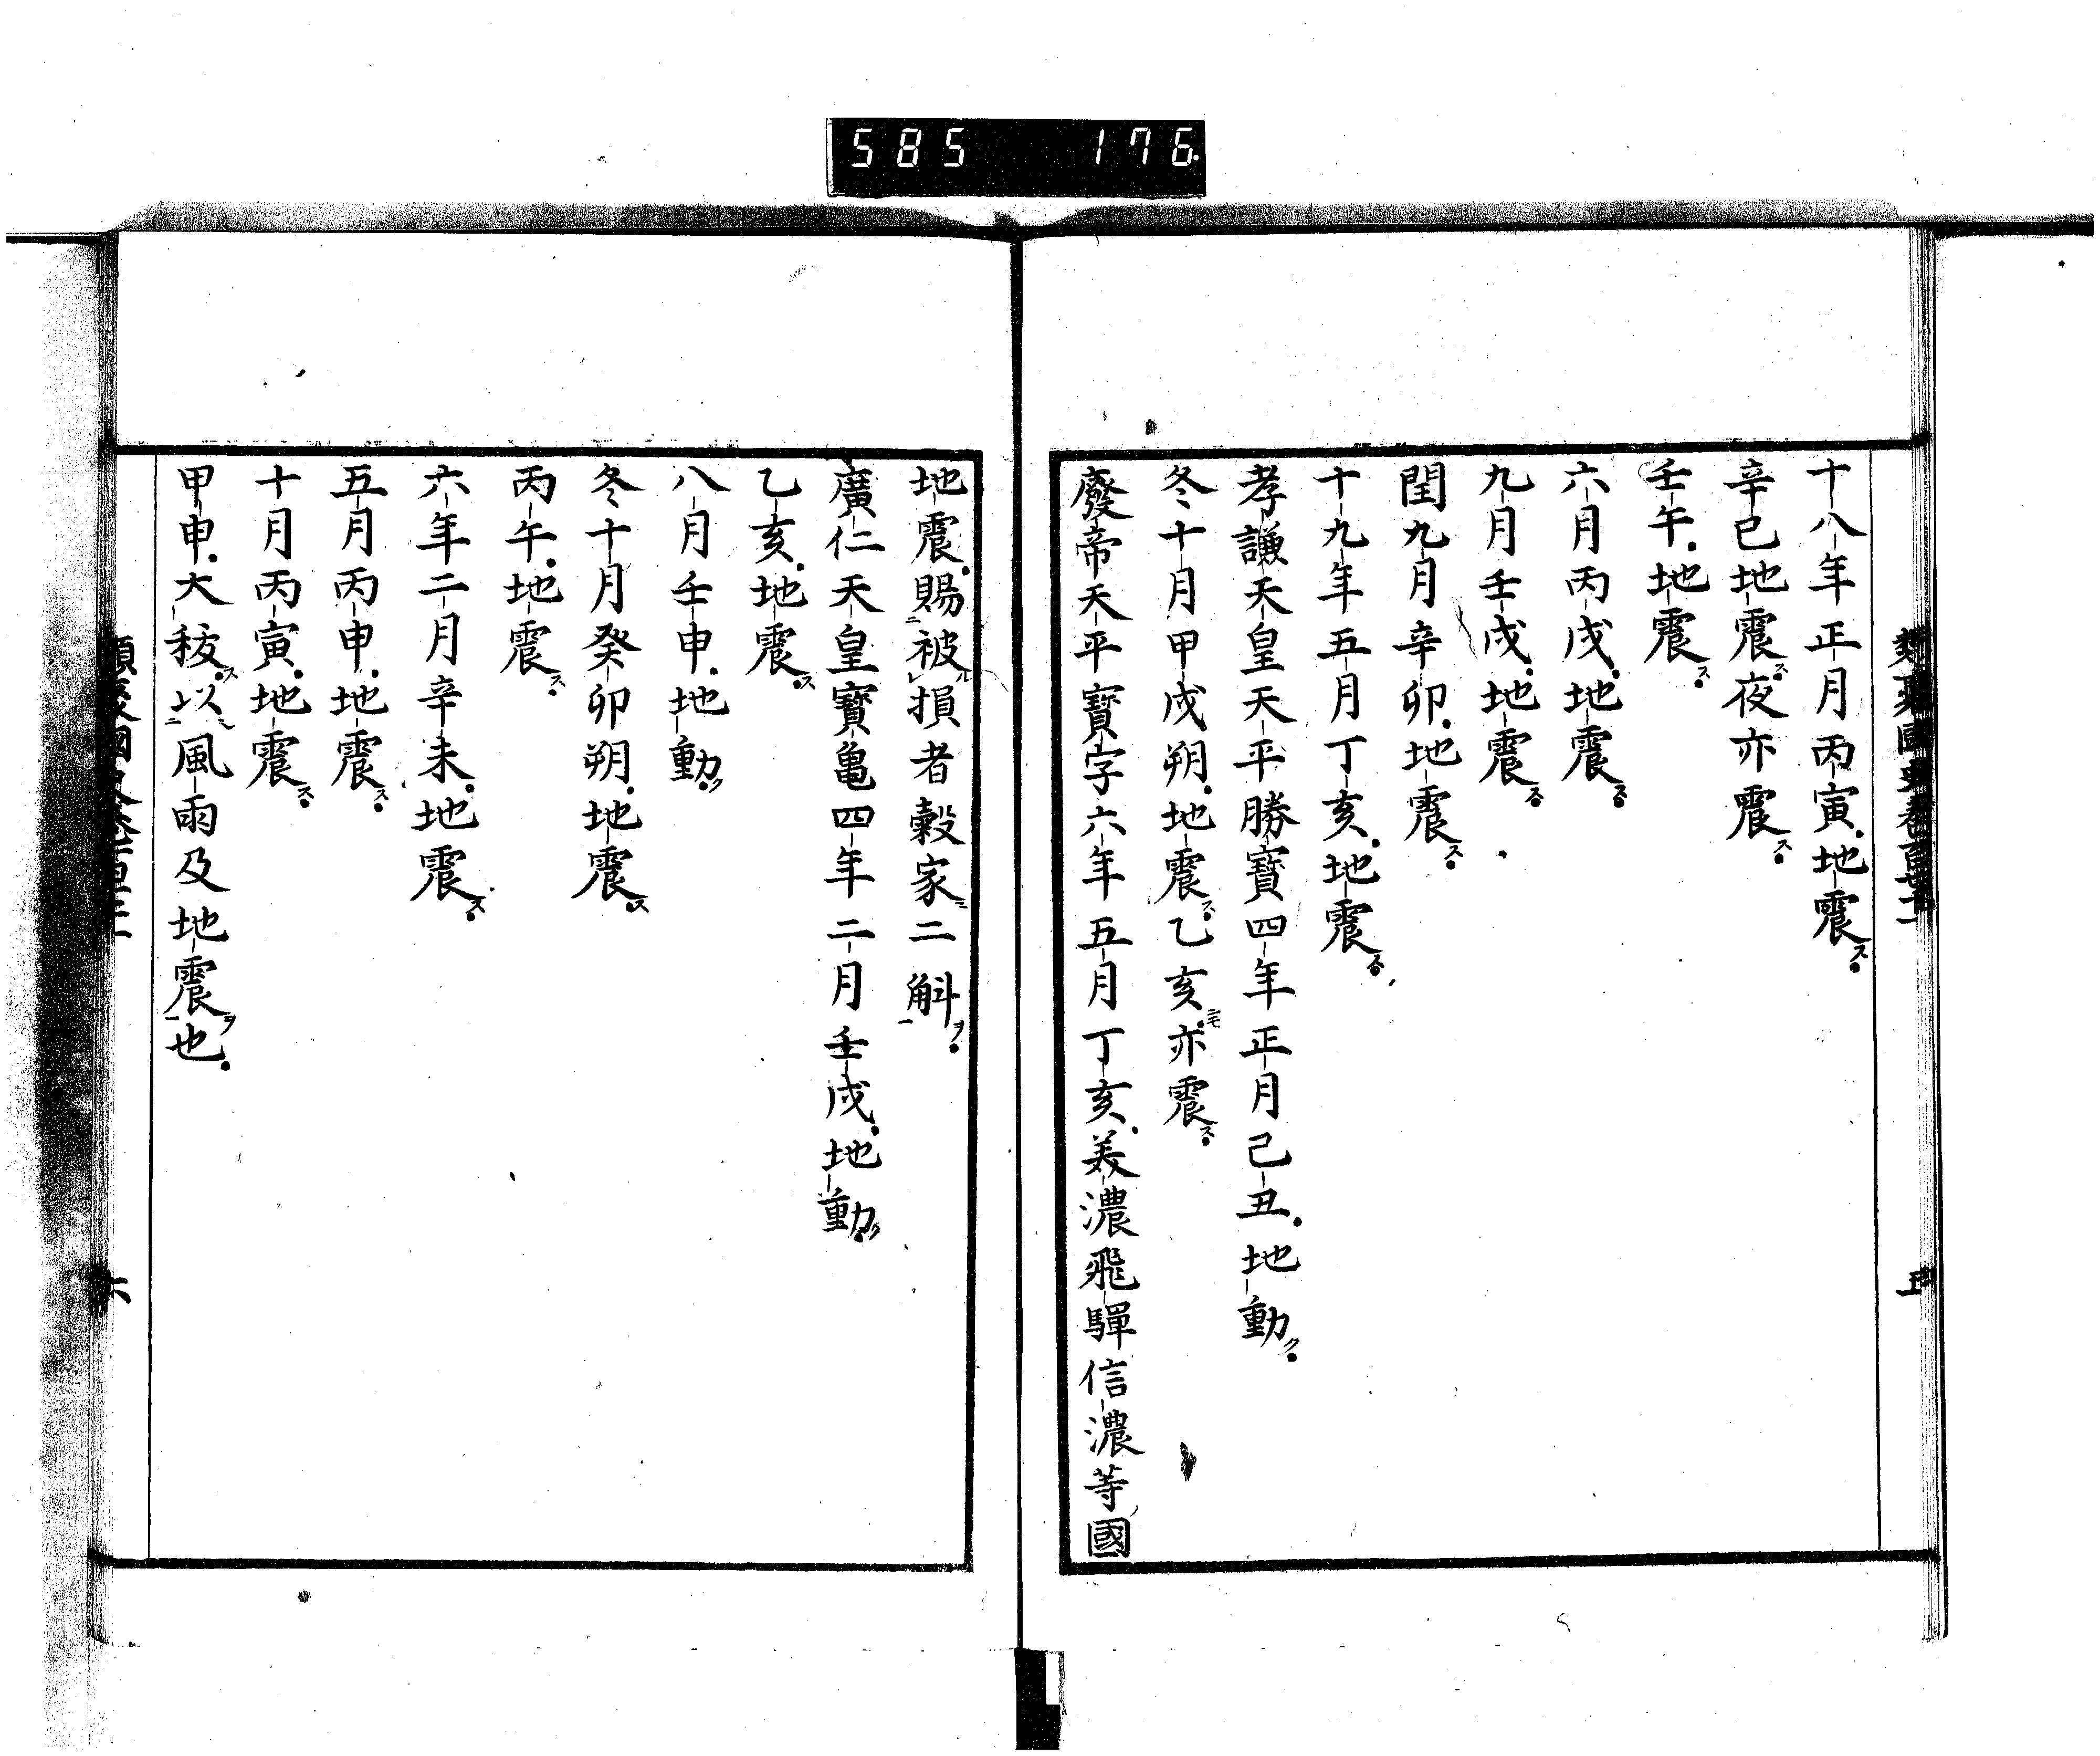 585 176
十八年正月丙寅地震ス
辛巳地震ス夜亦震ス
壬午地震ス
六月丙戌地震ス
九月壬戌地震ス
閏九月辛卯地震ス
十九年五月丁亥地震ス
孝謙天皇天平勝寶四年正月己丑地動ク
冬十月甲戌朔地震ス乙亥ニモ亦震ス
廢帝天平寶字六年五月丁亥美濃飛驒信濃等國
地震賜被損者穀家二斛ヲ
廣仁天皇寶亀四年二月壬戌地動ク
乙亥地震ス
八月壬申地動ク
冬十月癸卯朔地震ス
丙午地震ス
六年二月辛未地震ス
五月丙申地震ス
十月丙寅地震ス
甲申大秡ス以風雨及地震ヲ也
六